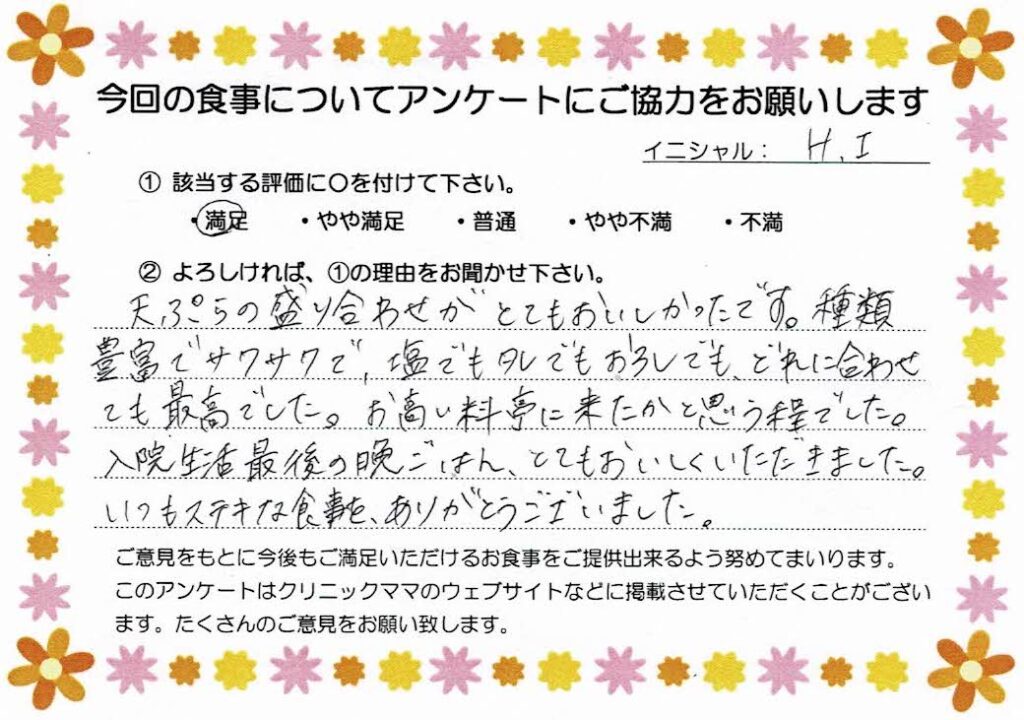 今回の食事についてアンケートにご協力をお願いします
イニシャル： H.I
① 該当する評価に〇を付けて下さい。
・満足 ・やや満足 ・普通 ・やや不満 ・不満
② よろしければ、①の理由をお聞かせ下さい。
天ぷらの盛り合わせがとてもおいしかったです。種類
豊富でサクサクで、塩でもタレでもおろしでも、どれに合わせ
ても最高でした。お高い料亭に来たかと思う程でした。
入院生活最後の晩ごはん、とてもおいしくいただきました。
いつもステキな食事を、ありがとうございました。
ご意見をもとに今後もご満足いただけるお食事をご提供出来るよう努めてまいります。
このアンケートはクリニックママのウェブサイトなどに掲載させていただくことがござい
ます。たくさんのご意見をお願い致します。